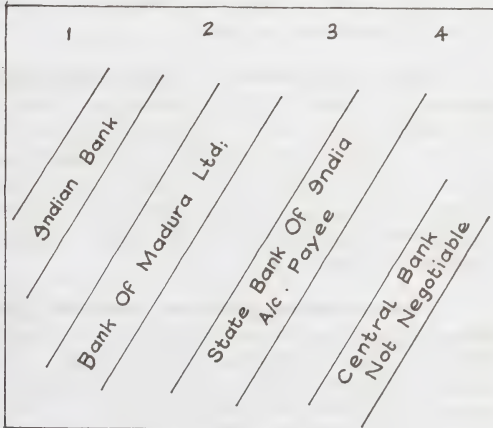 1 2 3 4
Indian Bank
Bank Of Madura Ltd;
State Bank Of India
A/c. Payee
Central Bank
Not Negotiable